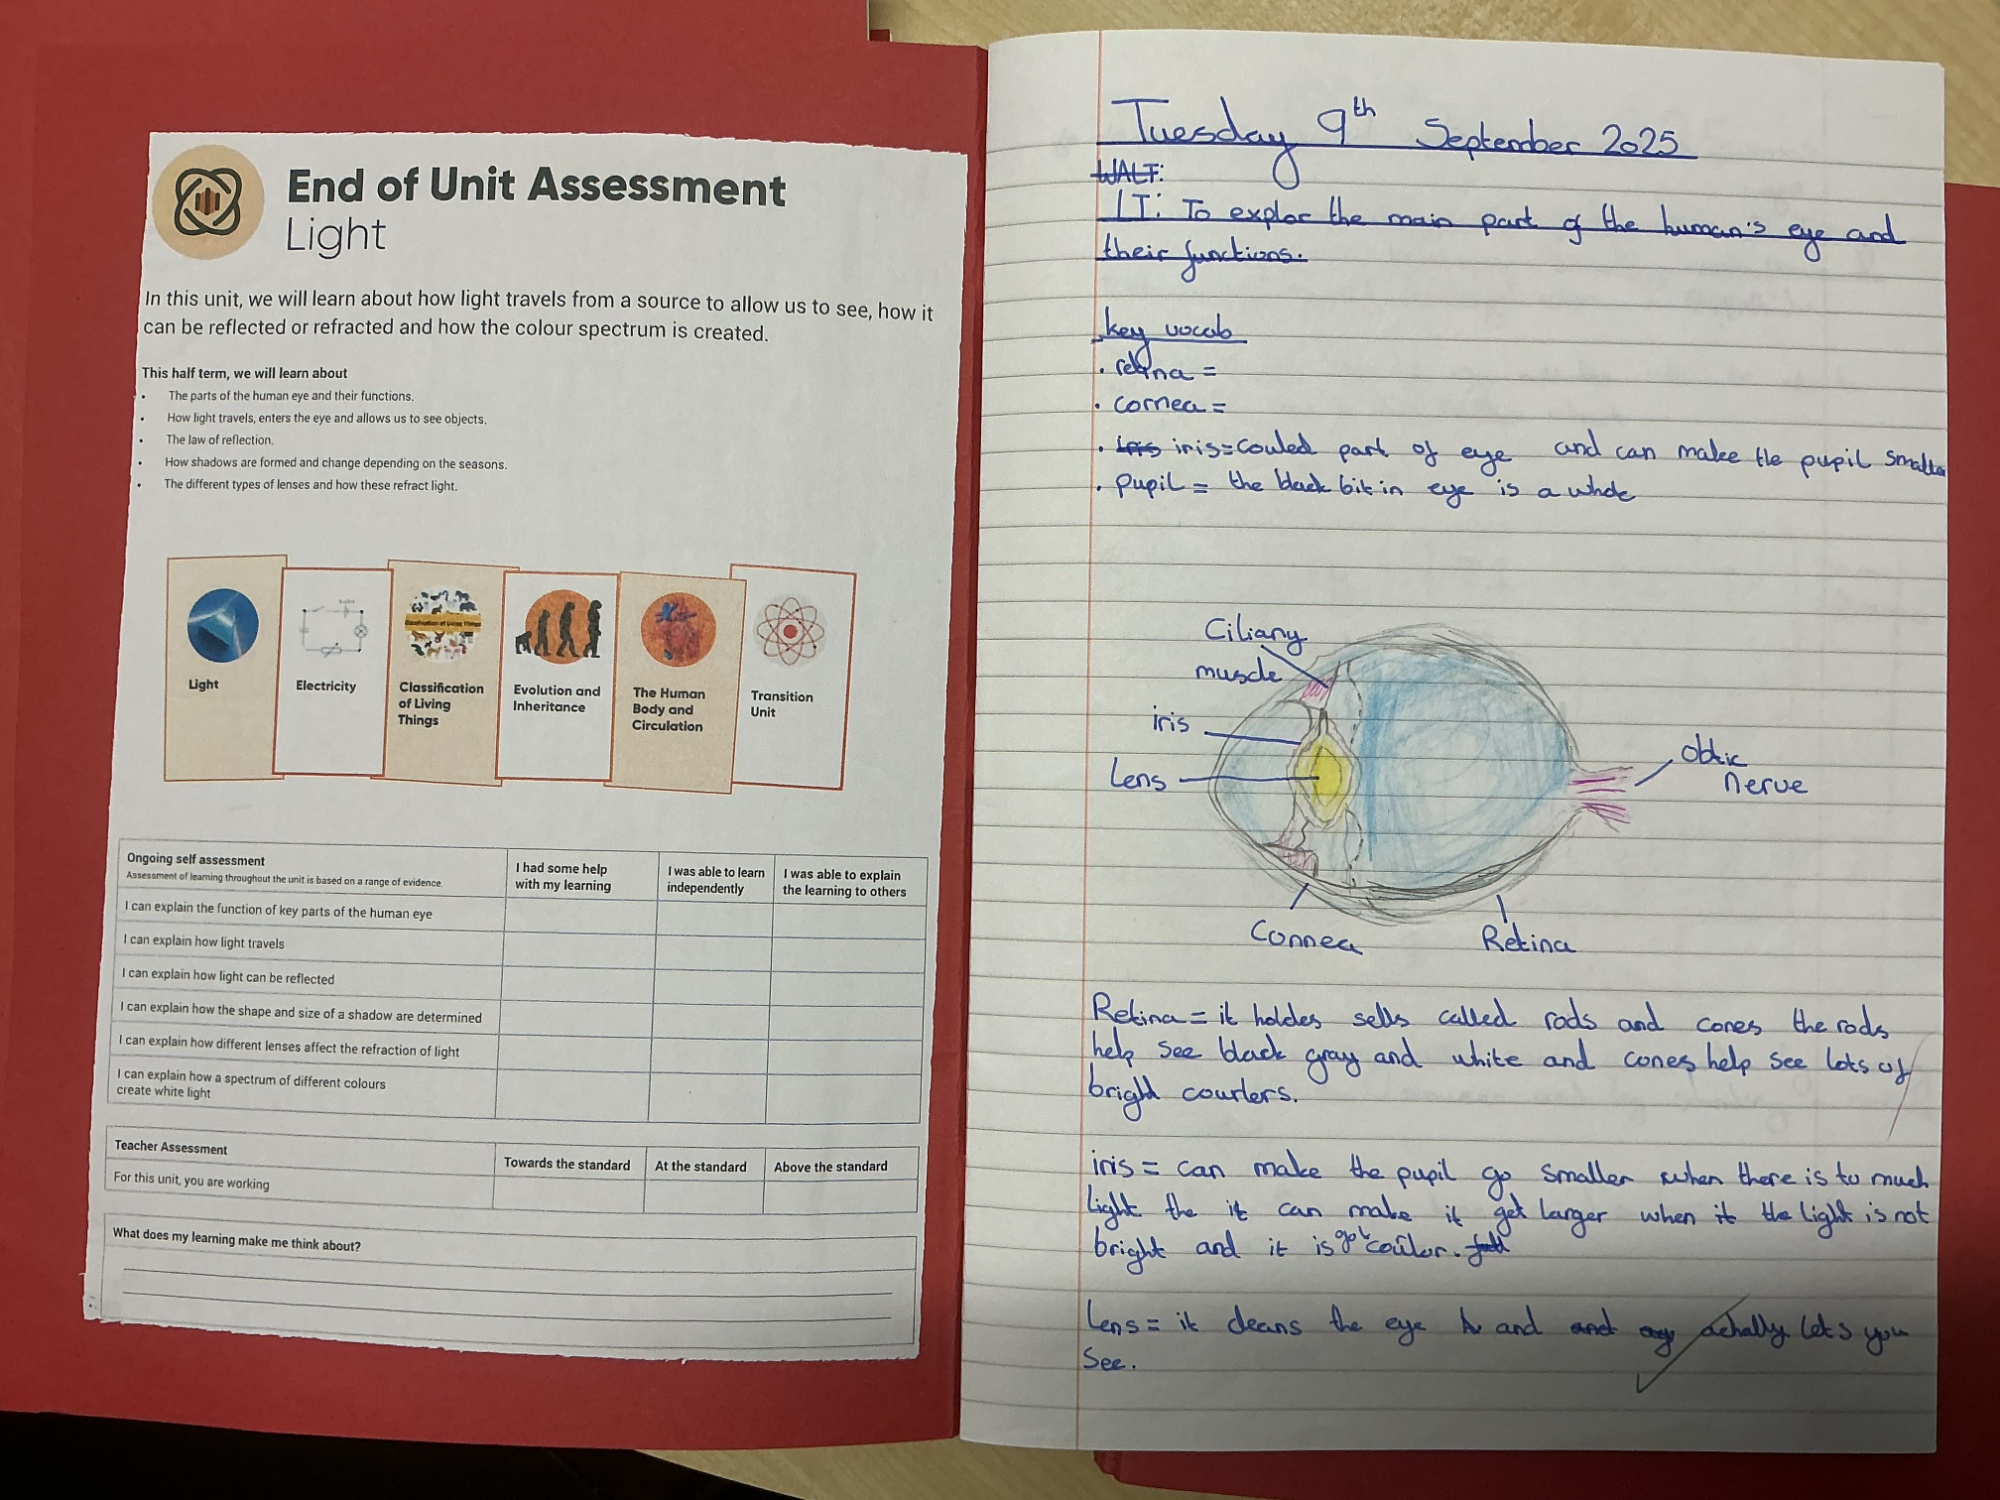 End of Unit Assessment
Light
In this unit, we will learn about how light travels from a source to allow us to see, how it
can be reflected or refracted and how the colour spectrum is created.
This half term, we will learn about
• The parts of the human eye and their functions.
• How light travels, enters the eye and allows us to see objects.
• The law of reflection.
• How shadows are formed and change depending on the seasons.
• The different types of lenses and how these refract light.
Light
Electricity
Classification
of Living
Things
Evolution and
Inheritance
The Human
Body and
Circulation
Transition
Unit
Ongoing self assessment
Assessment of learning throughout the unit is based on a range of evidence.
I had some help
with my learning
I was able to learn
independently
I was able to explain
the learning to others
I can explain the function of key parts of the human eye
I can explain how light travels
I can explain how light can be reflected
I can explain how the shape and size of a shadow are determined
I can explain how different lenses affect the refraction of light
I can explain how a spectrum of different colours
create white light
Teacher Assessment
Towards the standard
At the standard
Above the standard
For this unit, you are working
What does my learning make me think about?
Tuesday 9th September 2025
WALT:
LI: To explor the main part of the human's eye and
their functions.
key vocab
• retina =
• cornea =
• Iris iris=couled part of eye and can make the pupil smaller
• pupil = the black bit in eye is a whole
Ciliany
muscle
iris
Lens
obtic
nerve
Connea
Retina
Retina = it holdes sells called rods and cones the rods
help see black gray and white and cones help see lots of
bright courlers.
iris = can make the pupil go smaller when there is to much
light the it can make it get larger when it the light is not
bright and it is got coulor.
Lens = it cleans the eye and and actually lets you
see.